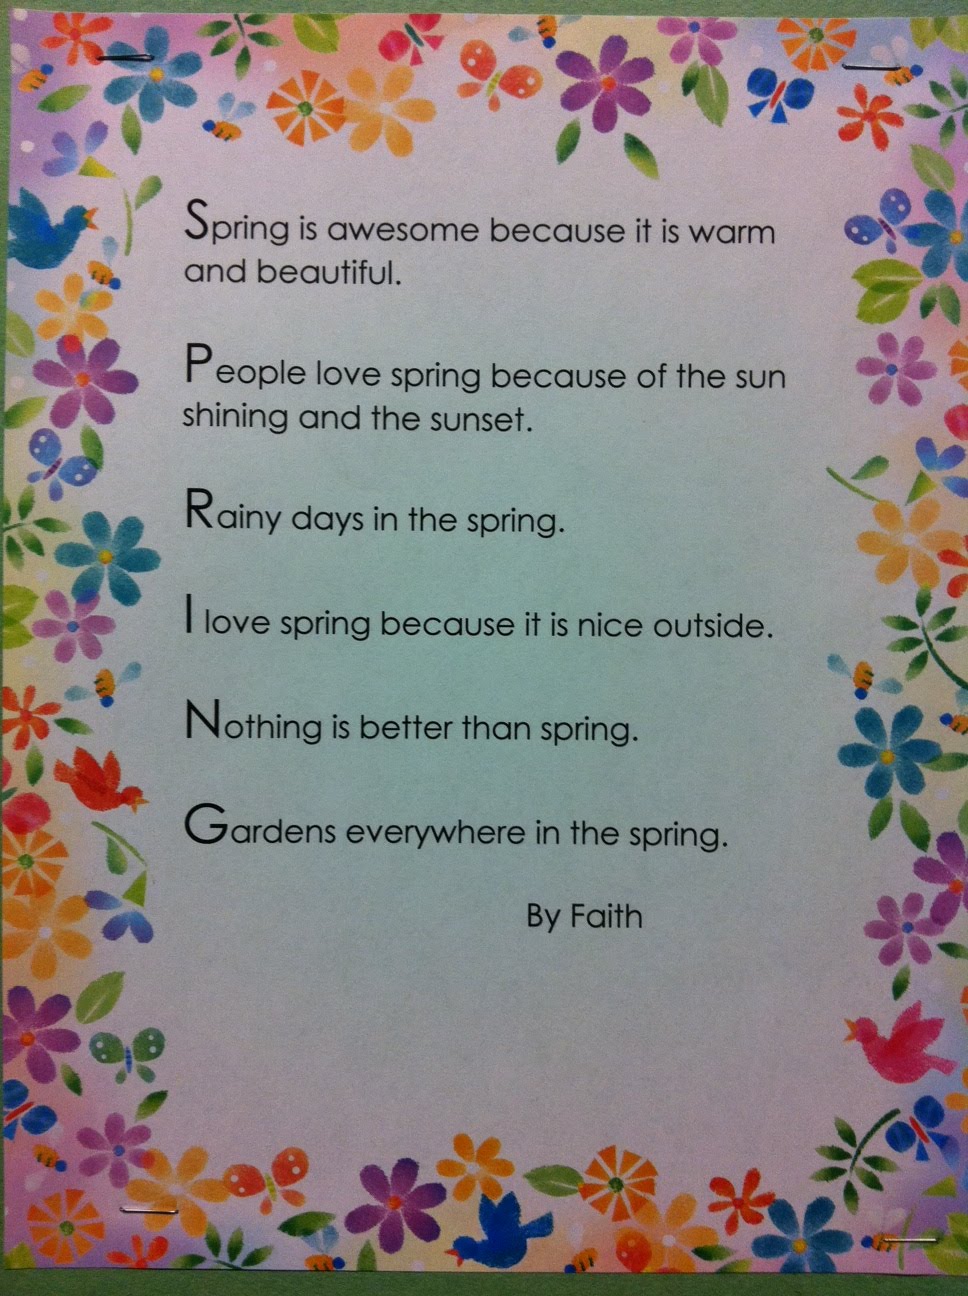 Spring is awesome because it is warm
and beautiful.
People love spring because of the sun
shining and the sunset.
Rainy days in the spring.
I love spring because it is nice outside.
Nothing is better than spring.
Gardens everywhere in the spring.
By Faith